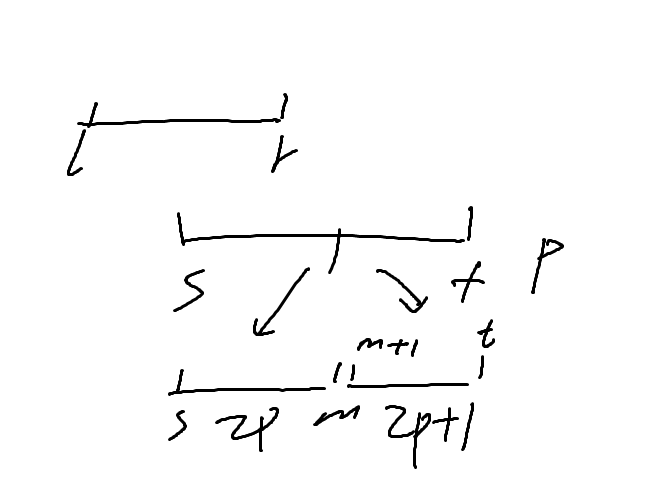 l r
s t p
m+1 t
s 2p m 2p+1